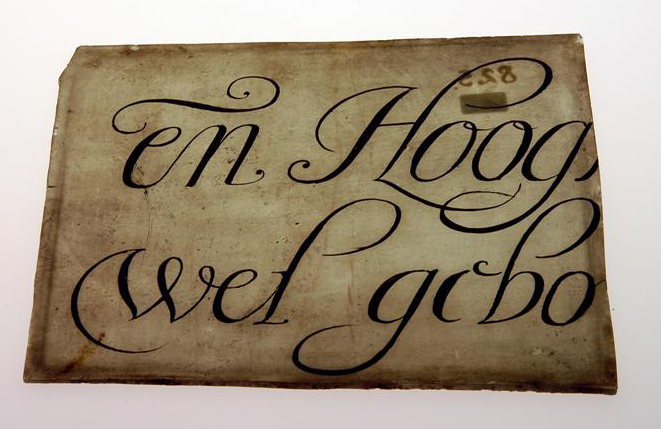 en Hoog
wel gebo
825.